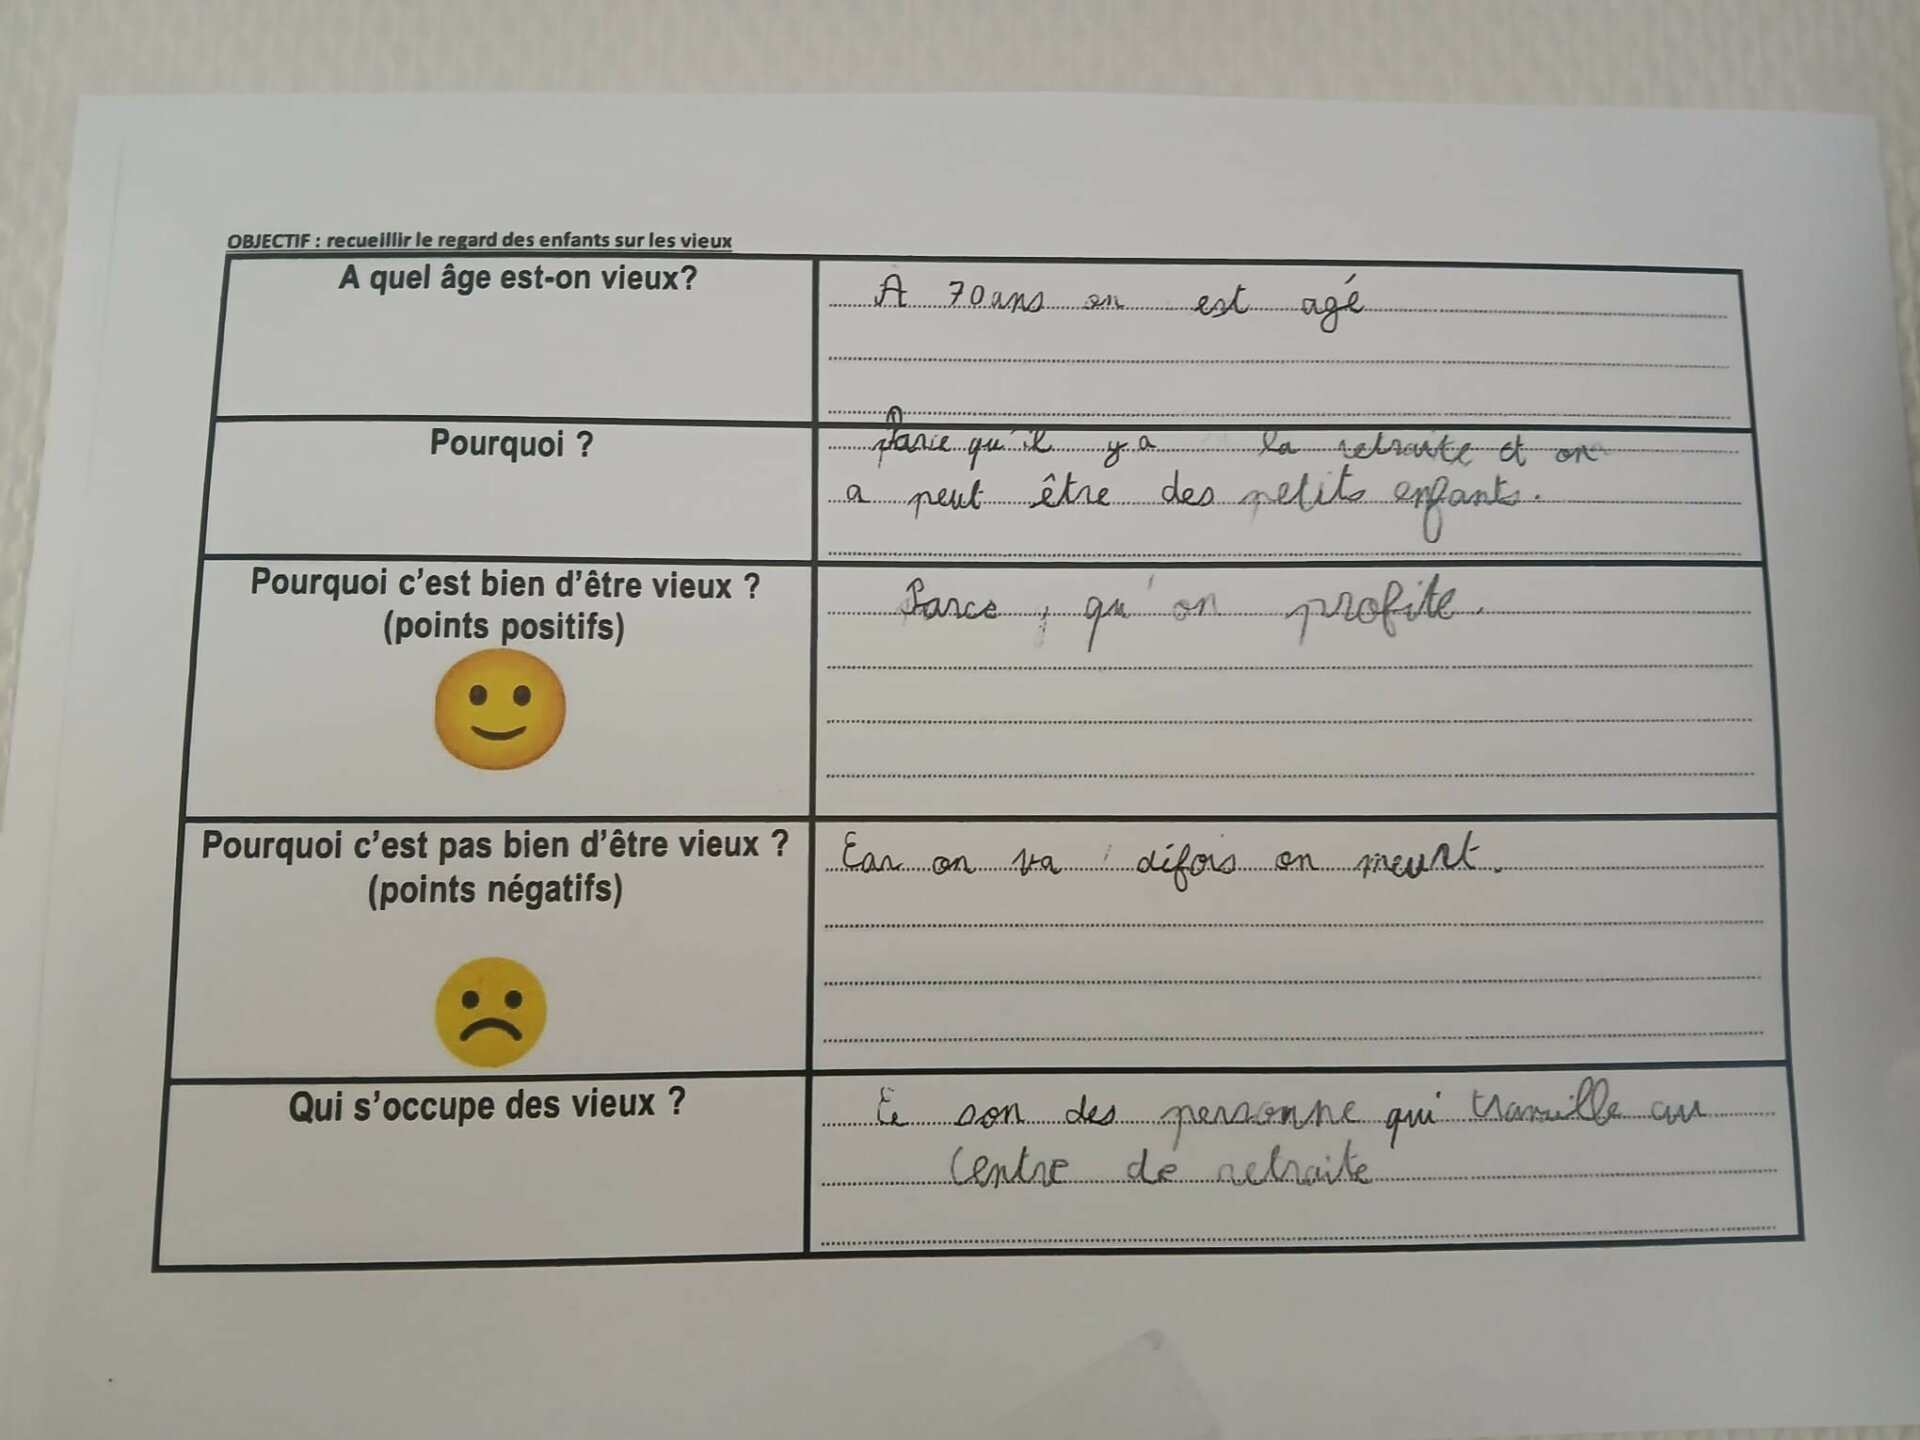 OBJECTIF : recueillir le regard des enfants sur les vieux
A quel âge est-on vieux?
A 70 ans on est agé
Pourquoi ?
Parce qu'il y a la retraite et on
a peut être des petits enfants.
Pourquoi c'est bien d'être vieux ?
(points positifs)
Parce, qu'on profite.
Pourquoi c'est pas bien d'être vieux ?
(points négatifs)
Car on va difois on meurt.
Qui s'occupe des vieux ?
Ce son des personne qui travaille au
centre de retraite